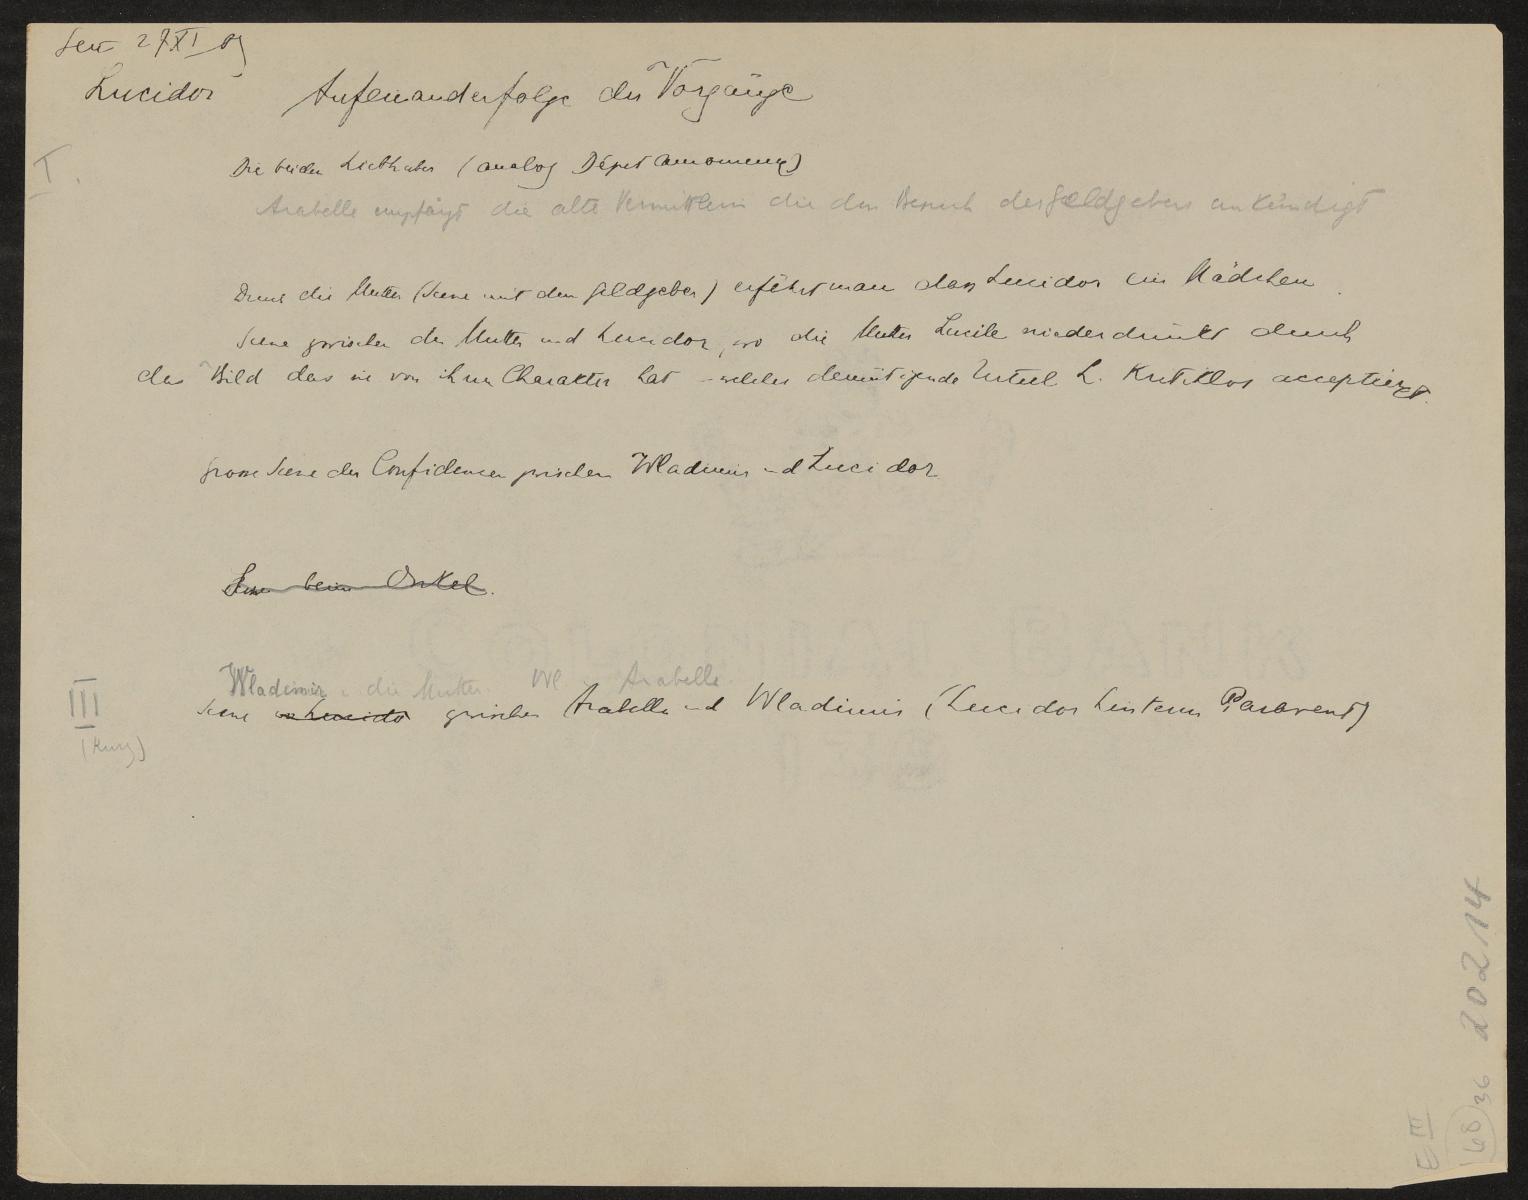 27 XI 09
Lucidor Aufeinanderfolge der Vorgänge
I.
Die beiden Liebhaber (analog Dépit amoureux)
Arabelle empfängt die alte Vermittlerin die den Besuch des Geldgebers ankündigt
Durch die Mutter (Scene mit dem Geldgeber) erfährt man dass Lucidor ein Mädchen.
Scene zwischen der Mutter und Lucidor, wo die Mutter Lucile niederdrückt durch
das Bild das sie von ihrem Charakter hat – welches demütigende Urteil L. kritiklos acceptiert.
grosse Scene der Confidencen zwischen Wladimir und Lucidor
Scene beim Onkel.
III
(kurz)
Wladimir u die Mutter. Wl Arabelle.
Scene Lucidor zwischen Arabella und Wladimir (Lucidor hinterm Paravent)
E III
68
36
20214